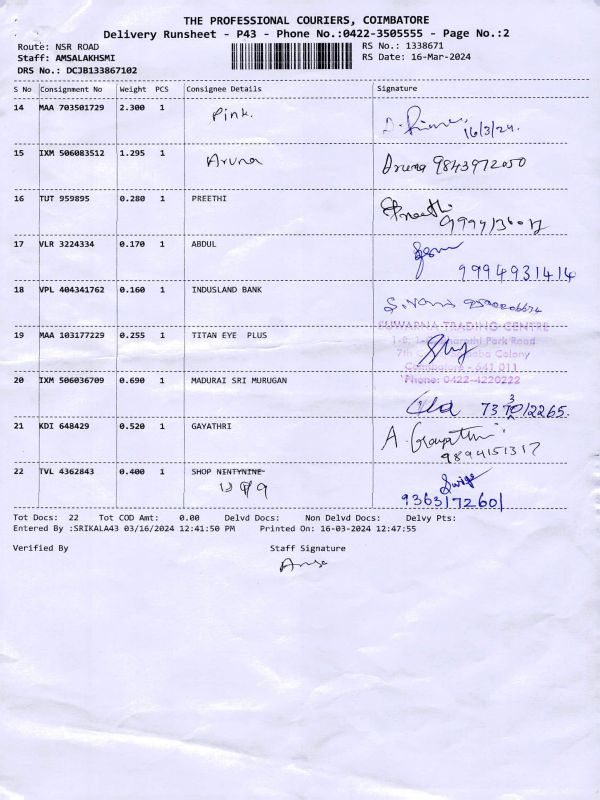 THE PROFESSIONAL COURIERS, COIMBATORE
Delivery Runsheet - P43 - Phone No.:0422-3505555 - Page No.:2
Route: NSR ROAD RS No.: 1338671
Staff: AMSALAKHSMI RS Date: 16-Mar-2024
DRS No.: DCJB133867102
S No Consignment No Weight PCS Consignee Details Signature
14 MAA 703501729 2.300 1 Pink. 16/3/24.
15 IXM 506083512 1.295 1 Aruna Aruna 9843972050
16 TUT 959895 0.280 1 PREETHI Preethi
17 VLR 3224334 0.170 1 ABDUL 9994931414
18 VPL 404341762 0.160 1 INDUSLAND BANK
SUWARNA TRADING CENTRE
19 MAA 103177229 0.255 1 TITAN EYE PLUS Park Road
7th Colony
Coimbatore - 641 011
20 IXM 506036709 0.690 1 MADURAI SRI MURUGAN Phone: 0422-4220222
21 KDI 648429 0.520 1 GAYATHRI A. Gayathri
9894151317
22 TVL 4362843 0.400 1 SHOP NINTYNINE
9363172601
Tot Docs: 22 Tot COD Amt: 0.00 Delvd Docs: Non Delvd Docs: Delvy Pts:
Entered By :SRIKALA43 03/16/2024 12:41:50 PM Printed On: 16-03-2024 12:47:55
Verified By Staff Signature